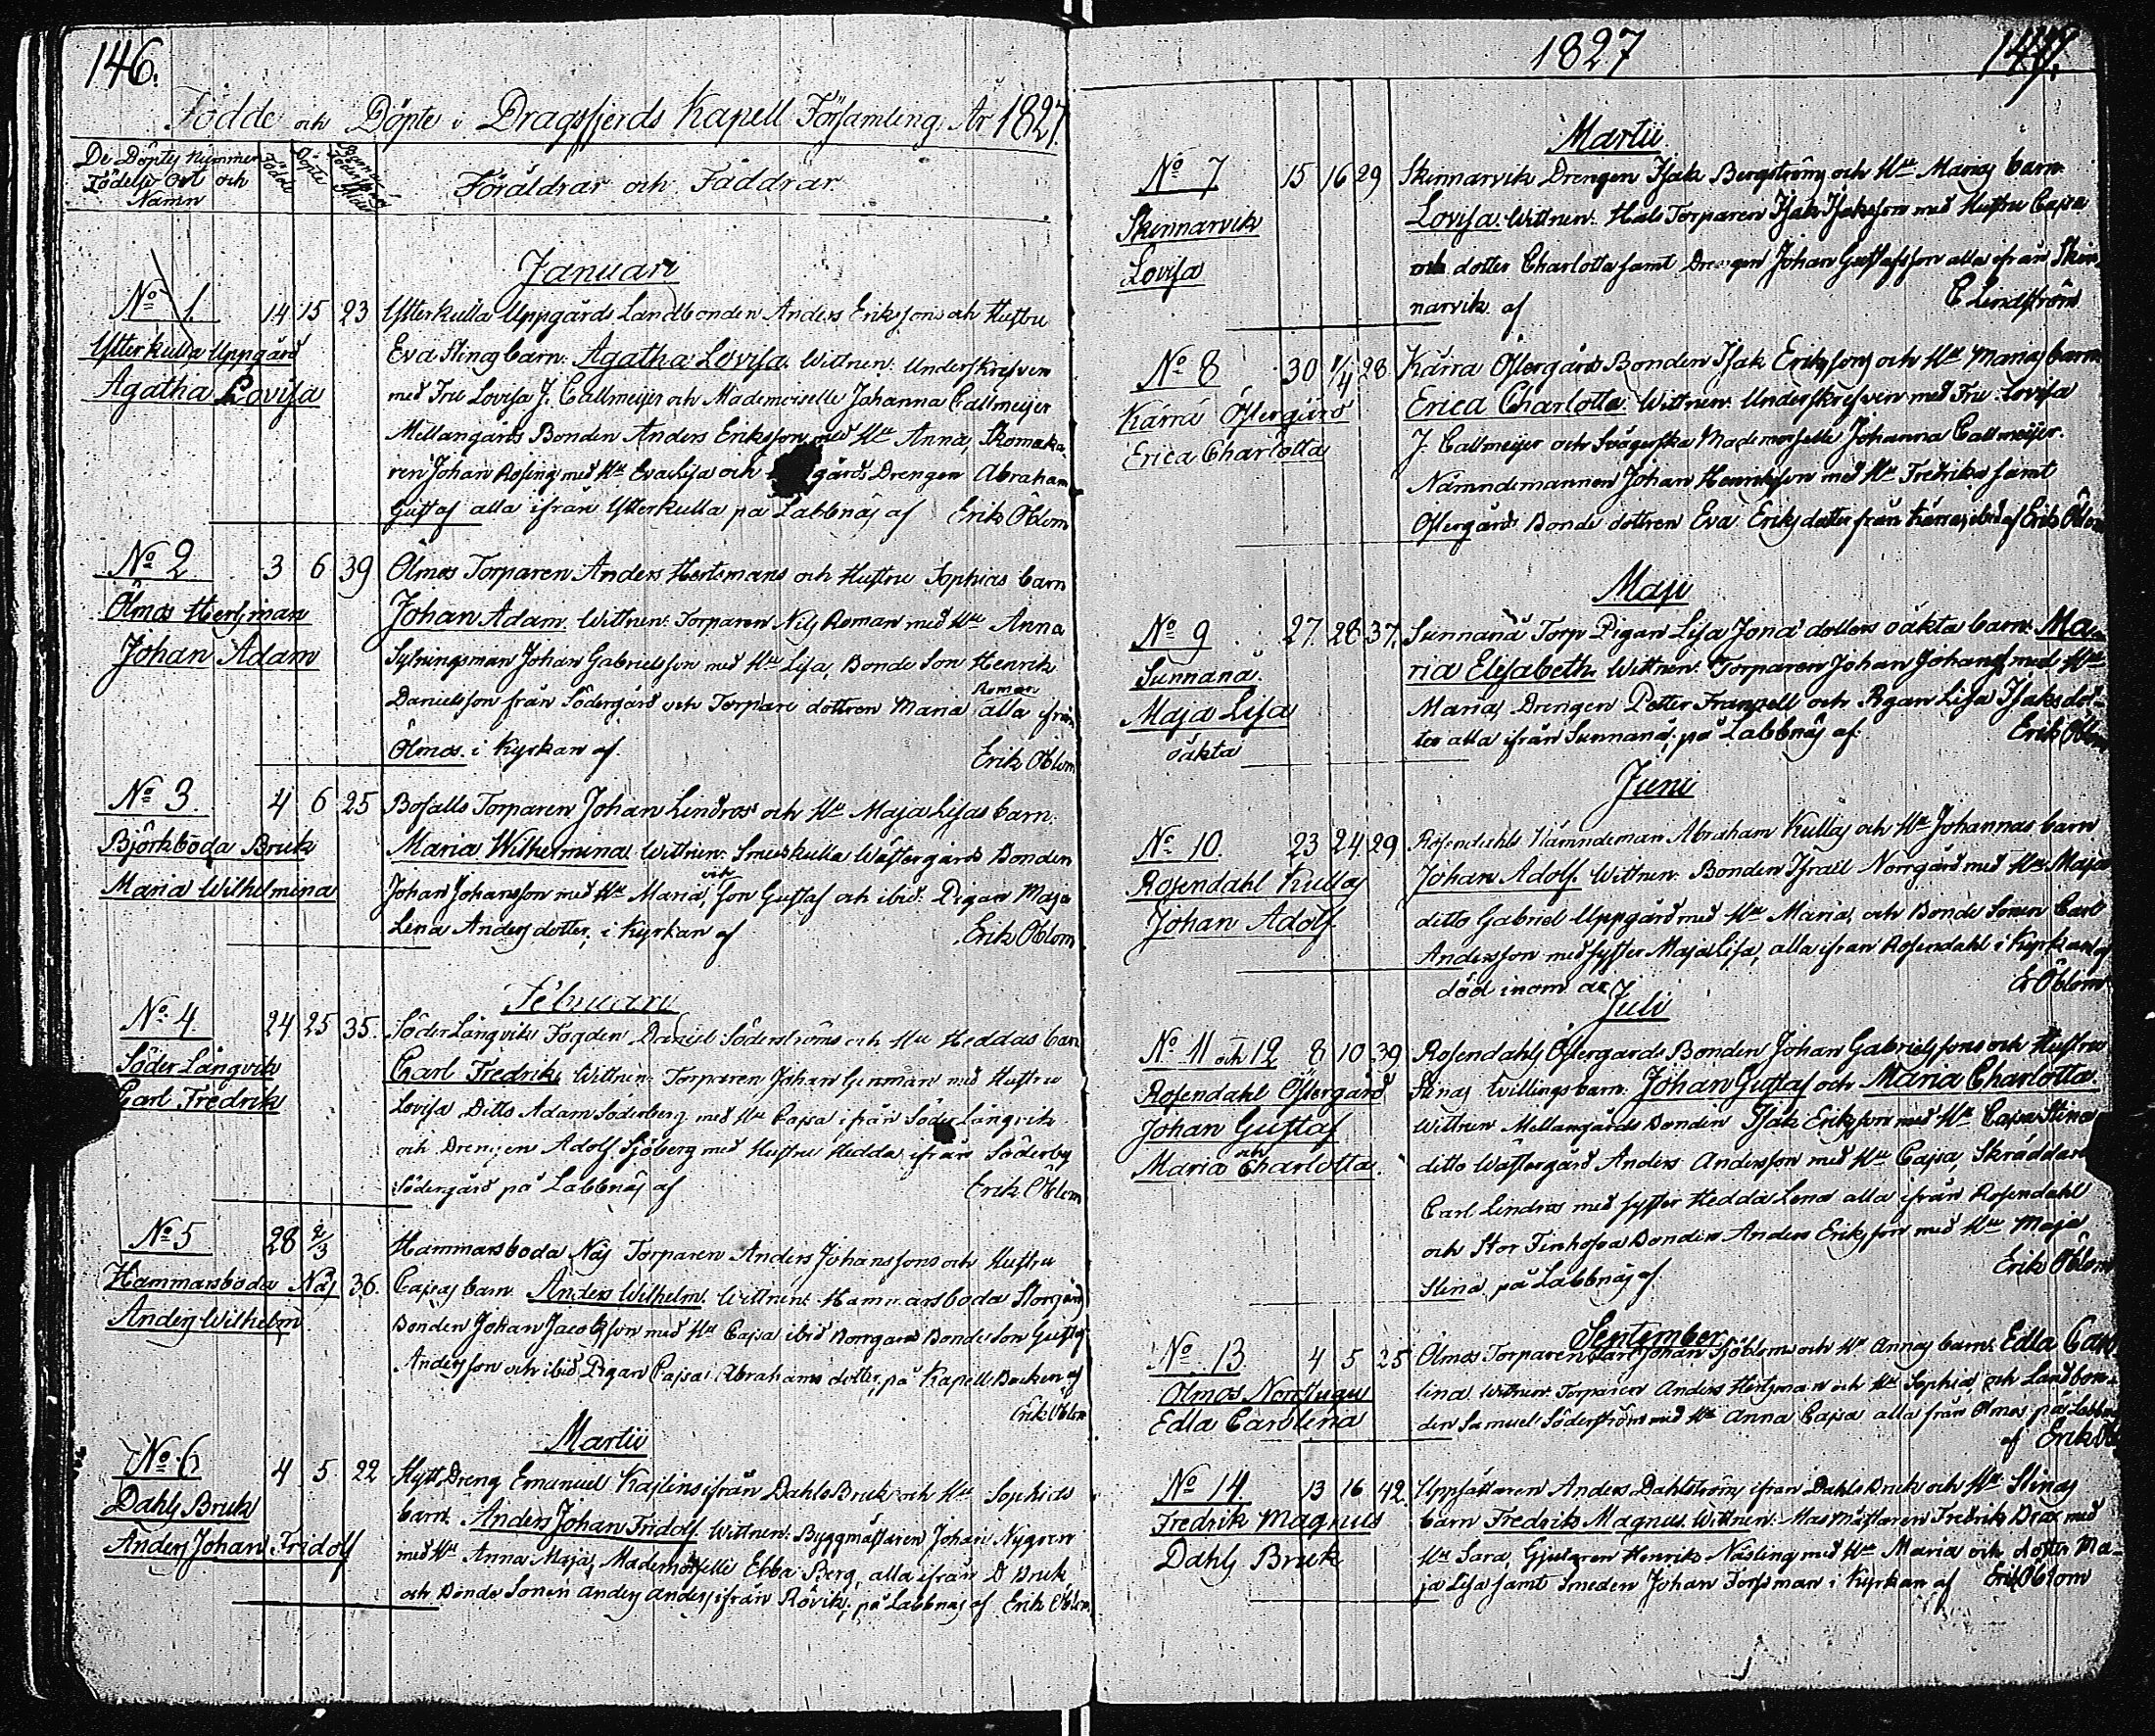 146.
Födde och Döpte i Dragsfjerds Kapell Församling År 1827.
De Döptes Nummer
Födelse Ort och
Namn
Födde
Döpte
Föräldrar och Faddrar
Januari
No 1 14 15 23
Ytterkulla Uppgård
Agatha Lovisa
Ytterkulla Uppgårds Landbonden Anders Erikssons och Hustru
Eva Stinas barn: Agatha Lovisa. Wittnen: Underskrefven
med Fru Lovisa J. Callmeijer och Mademoiselle Johanna Callmeijer
Mellangårds Bonden Anders Eriksson med Hu Anna, Skomaka-
ren Johan Rosing med Hu Eva Lisa och gårds Drengen Abraham
Gustaf alla ifrån Ytterkulla på Labbnäs af Erik Öblom
No 2 3 6 39
Ölmos Hertsman
Johan Adam
Ölmos Torparen Anders Hertsmans och Hustru Sophias barn
Johan Adam. Wittnen: Torparen Nils Roman med Hu Anna
Sytningsman Johan Gabrielsson med Hu Lisa, Bonde Son Henrik
Danielsson från Södergård och Torpare dottren Maria Roman alla ifrån
Ölmos i Kyrkan af Erik Öblom
No 3 4 6 25
Björkboda Bruk
Maria Wilhelmina
Bofalls Torparen Johan Lindros och Hu Maja Lisas barn
Maria Wilhelmina Wittnen: Smedskulla Wästergårds Bonden
Johan Johansson med Hu Maria, och Son Gustaf och ibid: Pigan Maja
Lena Anders dotter, i Kyrkan af Erik Öblom
Februari
No 4 24 25 35
Söder Långvik
Carl Fredrik
Söder Långviks Fogden Daniel Söderströms och Hu Heddas barn
Carl Fredrik, Wittnen: Torparen Johan Genman med Hustru
Lovisa Ditto Adam Söderberg med Hu Cajsa ifrån Söder Långvik
och Drengen Adolf Sjöberg med Hustru Hedda ifrån Söderby
Södergård på Labbnäs af Erik Öblom
No 5 28 2/3 36
Hammarsboda Näs
Anders Wilhelm
Hammarsboda Näs Torparen Anders Johanssons och Hustru
Cajsas barn Anders Wilhelm. Wittnen: Hammarsboda Storgårds
Bonden Johan Jacobsson med Hu Cajsa ibid Norrgård Bonde Son Gustaf
Andersson och ibid Pigan Cajsa Abrahams dotter, på Kapell Backen af
Erik Öblom
Martii
No 6 4 5 22
Dahls Bruk
Anders Johan Fridolf
Hytt Dreng Emanuel Kajlins ifrån Dahls Bruk och Hu Sophias
barn Anders Johan Fridolf. Wittnen: Byggmästaren Johan Nygren
med Hu Anna Maja, Mademoiselle Ebba Berg, alla ifrån D Bruk
och Bonde Sonen Anders Anders ifrån Rövik, på Labbnäs af Erik Öblom
1827
147.
Martii
No 7 15 16 29
Skinnarvik
Lovisa
Skinnarvik Drengen Isak Bergströms och Hu Marias barn
Lovisa. Wittnen: Hals Torparen Isak Isaksson med Hustru Cajsa
och dotter Charlotta samt Drengen Johan Gustafsson alla ifrån Skin-
narvik af C Lindström
No 8 30 1/4 28
Kärra Östergård
Erica Charlotta
Kärra Östergårds Bonden Isak Erikssons och Hu Marias barn
Erica Charlotta. Wittnen: Underskrefven med Fru Lovisa
J. Callmeijer och Svägerska Mademoiselle Johanna Callmeijer.
Nämndemannen Johan Henriksson med Hu Fredrika samt
Östergårds Bonde dottren Eva Eriks dotter från Kärra, ibid af Erik Öblom
Maji
No 9 27 28 37
Sunnanå
Maja Lisa
oäkta
Sunnanå Torp Pigan Lisa Jona dotters oäkta barn Ma-
ria Elisabeth. Wittnen: Torparen Johan Johans med Hu
Maria, Drengen Petter Franzell och Pigan Lisa Isaks dot-
ter alla ifrån Sunnanå, på Labbnäs af Erik Öblom
Junii
No 10 23 24 29
Rosendahl Kullas
Johan Adolf
Rosendahls Nämndeman Abraham Kullas och Hu Johannas barn
Johan Adolf. Wittnen: Bonden Israel Norrgård med Hu Maja
ditto Gabriel Uppgård med Hu Maria, och Bonde Sonen Carl
Andersson med syster Maja Lisa, alla ifrån Rosendahl i Kyrkan af
död inom år E Öblom
Julii
No 11 och 12 8 10 39
Rosendahl Östergård
Johan Gustaf
och
Maria Charlotta
Rosendahls Östergårds Bonden Johan Gabrielssons och Hustru
Stinas Willings barn: Johan Gustaf och Maria Charlotta.
Wittnen Mellangårds Bonden Isak Eriksson med Hu Cajsa Stina
ditto Wästergård Anders Andersson med Hu Cajsa, Skräddare
Carl Lindros med syster Hedda Lena alla ifrån Rosendahl
och Stor Finhofva Bonden Anders Eriksson med Hu Maja
Stina, på Labbnäs af Erik Öblom
September
No 13 4 5 25
Ölmos Norrstugu
Edla Carolina
Ölmos Torparen Carl Johan Sjöbloms och Hu Annas barn Edla Caro-
lina. Wittnen Torparen Anders Hertzman och Hu Sophia, och Landbon-
den Samuel Söderström med Hu Anna Cajsa alla från Ölmos på Labbnäs
af Erik Öblom
No 14 13 16 42
Fredrik Magnus
Dahls Bruk
Uppsättaren Anders Dahlströms ifrån Dahls Bruk och Hu Stinas
barn Fredrik Magnus. Wittnen: Masmästaren Fredrik Brax med
Hu Sara, Gjutaren Henrik Näsling med Hu Maria och dotter Ma-
ja Lisa samt Smeden Johan Forssman i Kyrkan af Erik Öblom